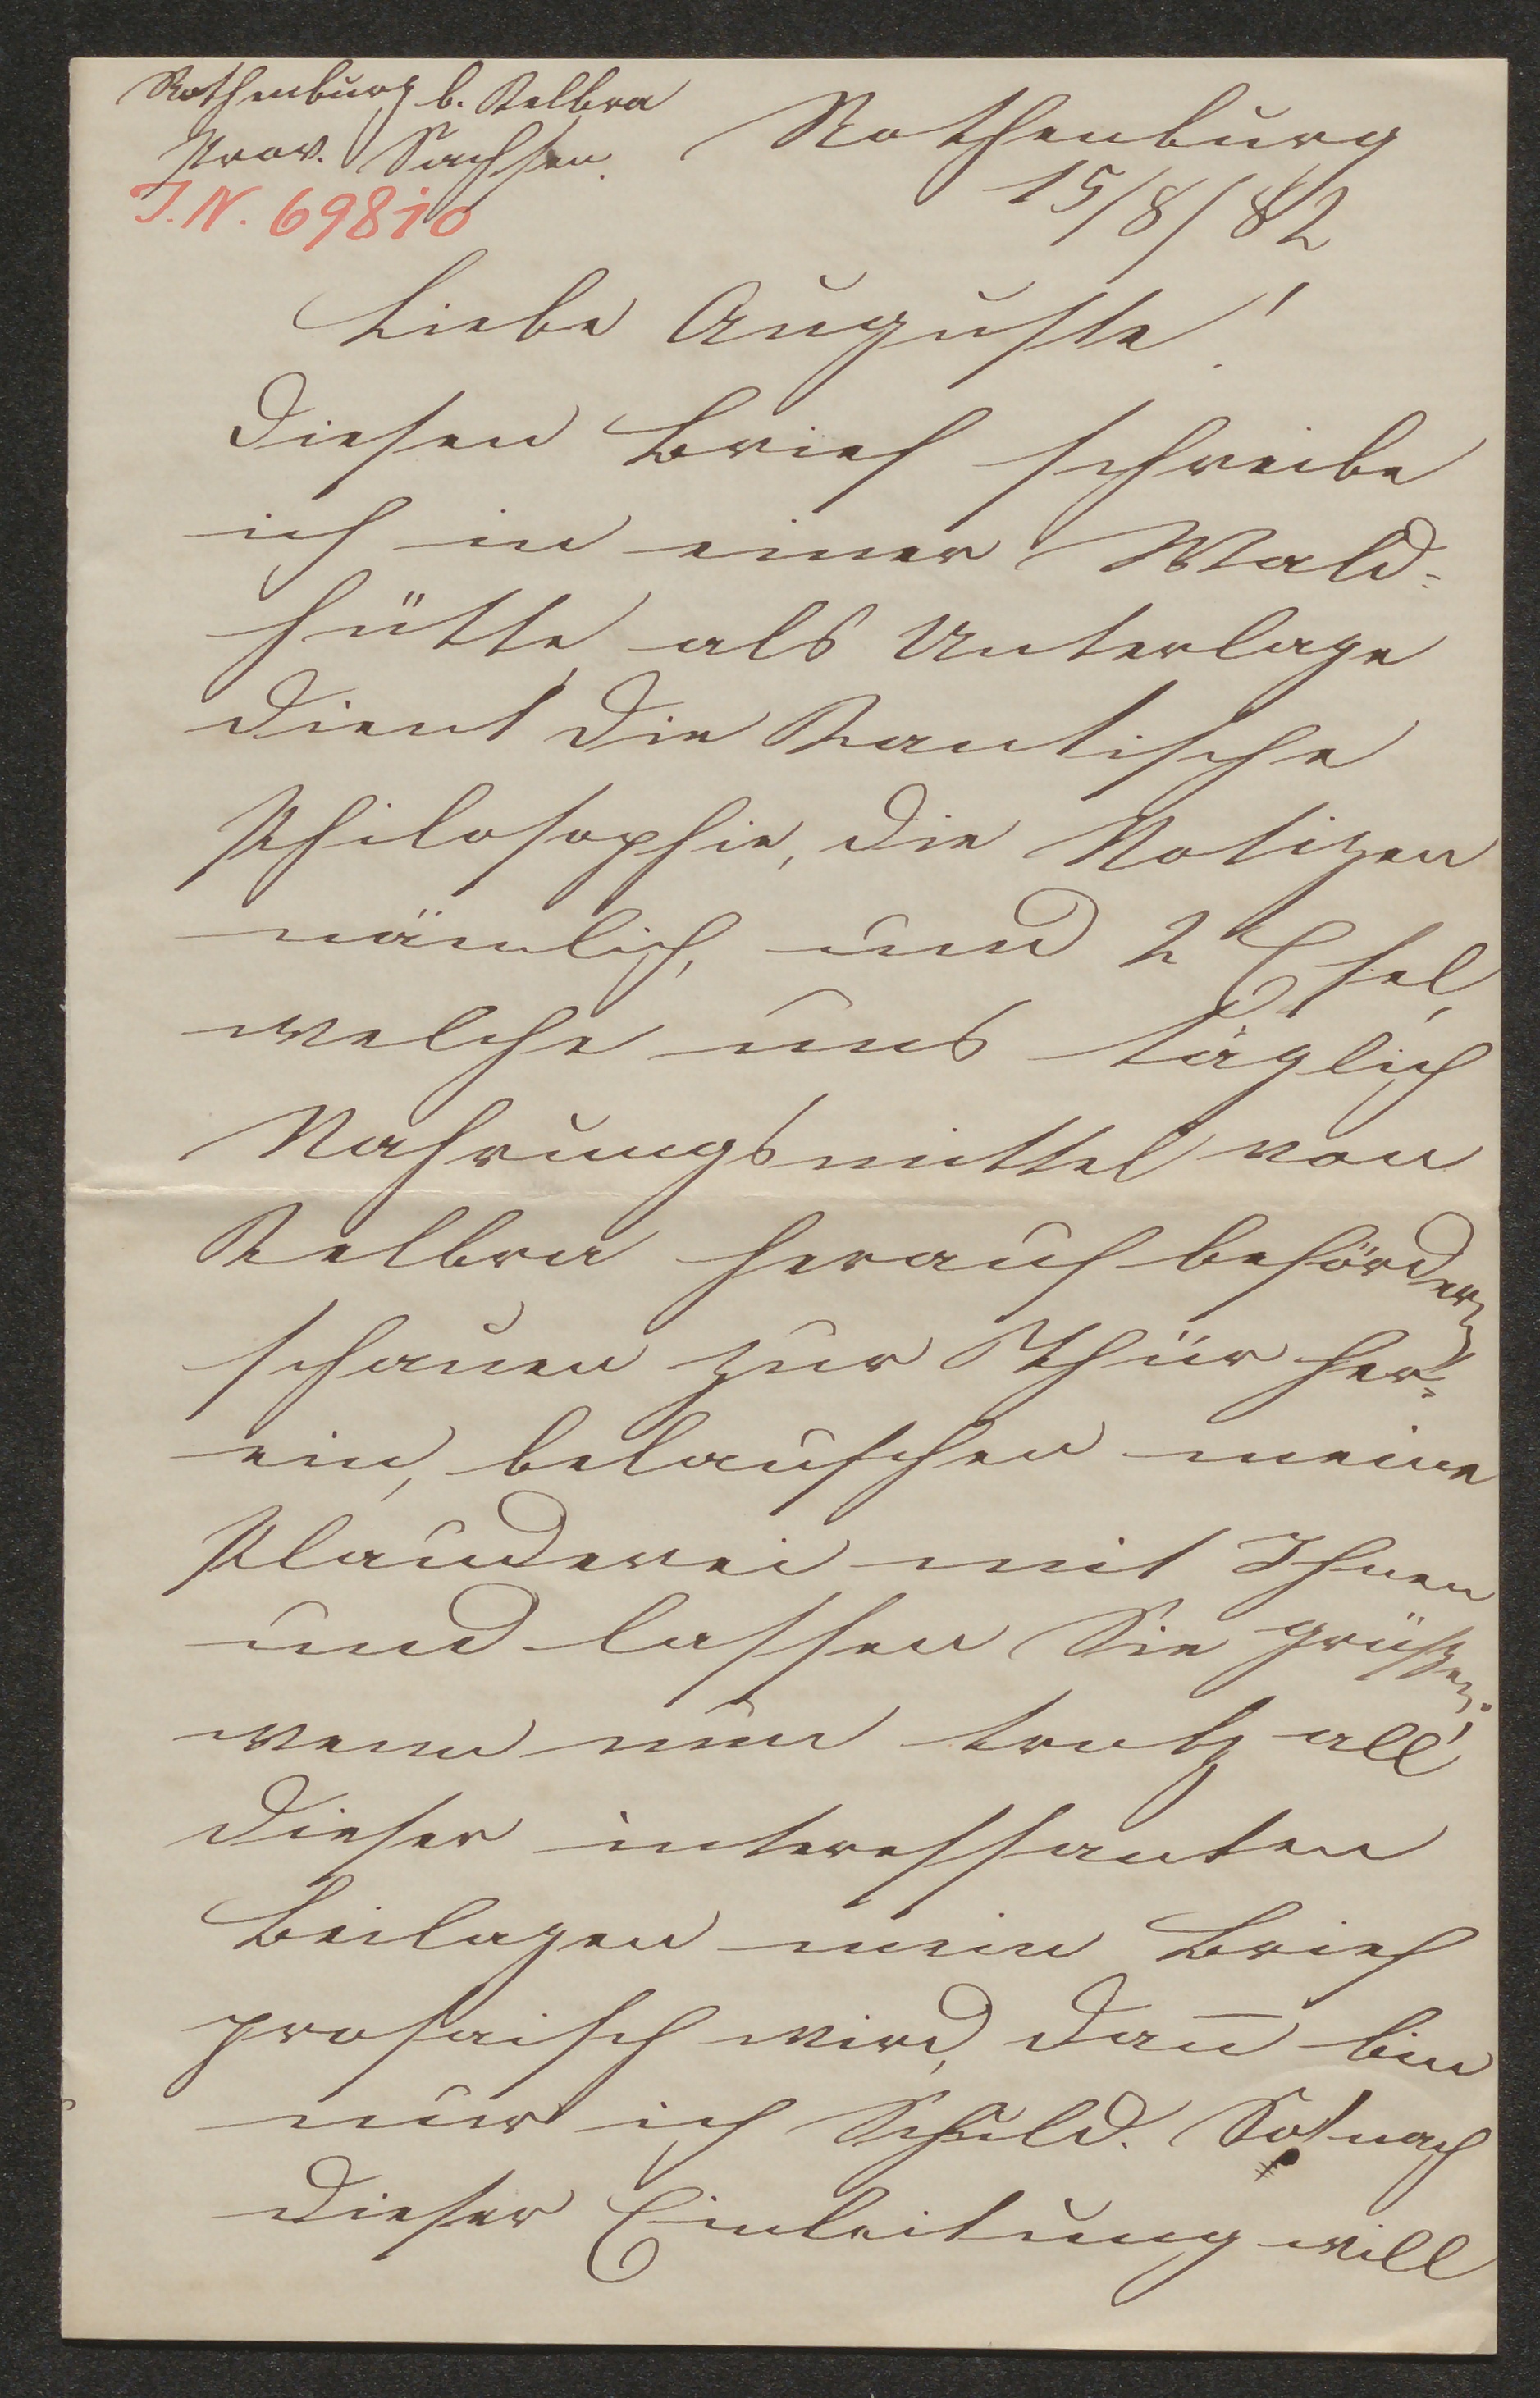 Rothenburg b. Kelbra
Prov. Sachsen.
J.N. 69810
Rothenburg
15/8/82
Liebe Auguste!
Diesen Brief schreibe
ich in einer Wald-
hütte, als Unterlage
dient die Kantische
Philosophie, die Notizen
nämlich, und 2 Esel,
welche uns täglich
Nahrungsmittel von
Kelbra herauf befördern
schauen zur Thür her-
ein, belauschen meine
Plauderei mit Ihnen
und lassen Sie grüßen.
wenn nun trotz all'
dieser interessanten
Beilagen mein Brief
prosaisch wird, dan̄ bin
nur ich Schuld. So! nach
dieser Einleitung will